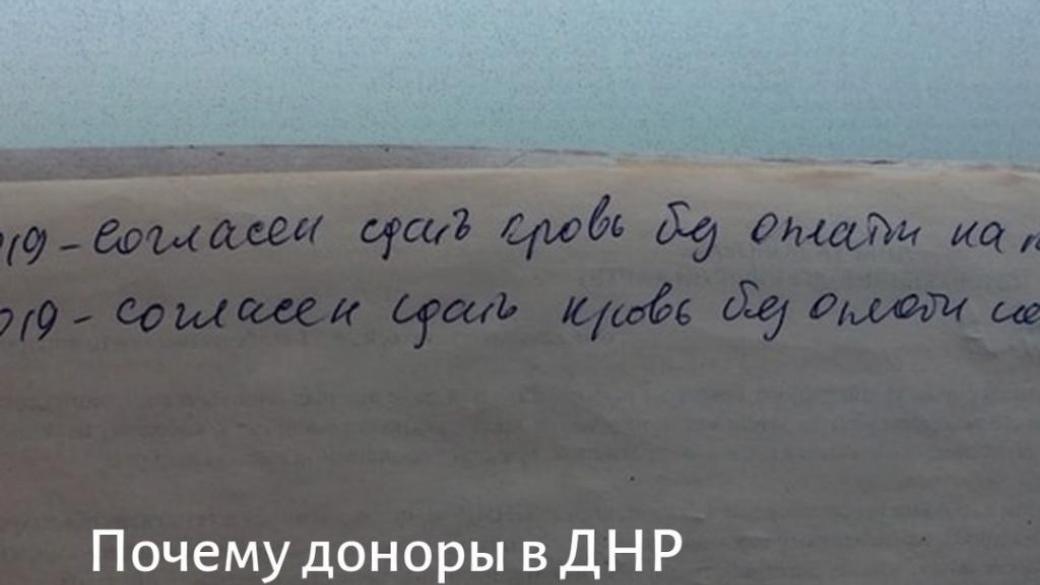 019 - согласен сдать кровь без оплаты на
019 - согласен сдать кровь без оплаты на
Почему доноры в ДНР